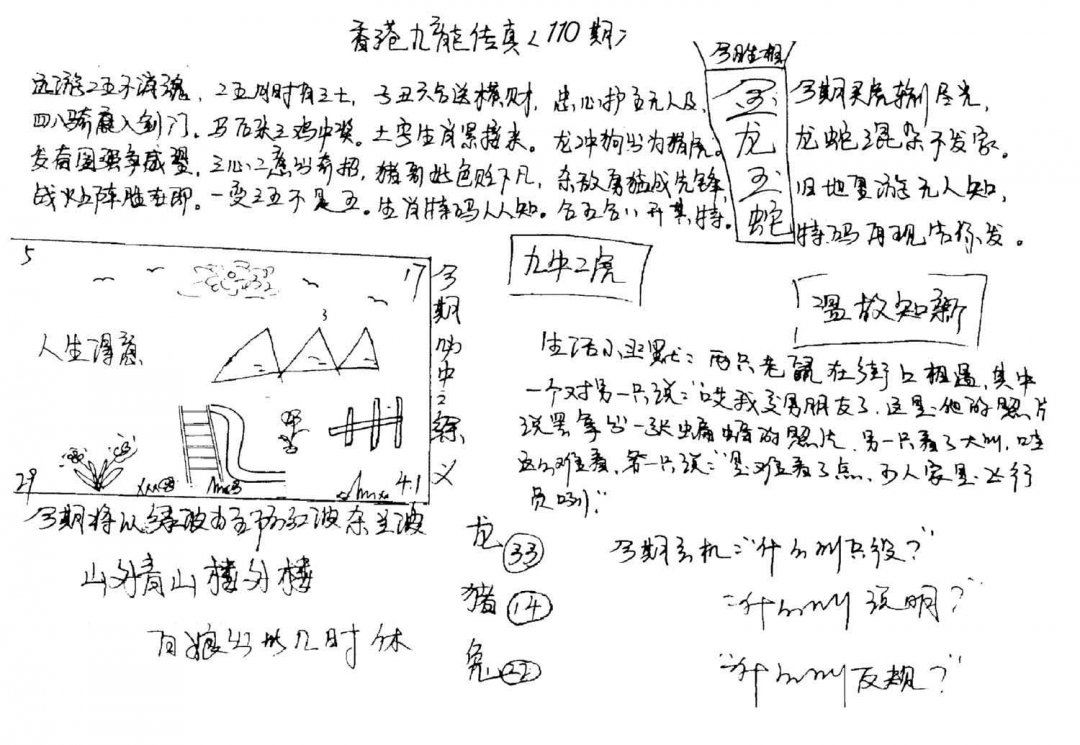 香港九龍传真〈110期〉
远游2五不消魂，2五月时有三土，子丑六合送横财，忠心护主无人及，
四八骑鹿入剑门。马后张三鸡中奖。土字生肖累接来。龙冲狗出为猪虎。
发奋图强争成翌，三心二意出奇招，猪哥好色贬下凡，杀敌勇猛成先锋，
战火五阵胜在即。一变三五不是五。生肖特码人人知。合五合八开其特。
今胜相
玉
龙
玉
蛇
今期买虎输尽光，
龙蛇混杂不发家。
旧地重游无人知，
特码再现告你发。
5
17
3
人生得意
29
41
今期的中2综义
九牛二虎
温故知新
生活小幽默：两只老鼠在街口相遇，其中
一个对另一只说：“哎我交男朋友了，这是他的照片
说罢拿出一张蝙蝠的照片，另一只看了大叫，哇
这么难看，第一只说：“是难看了点，可人家是飞行
员咧”
今期将以绿波为主防红波杀兰波
山外青山楼外楼
百娘出此几时休
龙 33
猪 14
兔 22
今期玄机：“什么叫兵役？”
“什么叫说明？”
“什么叫反规？”